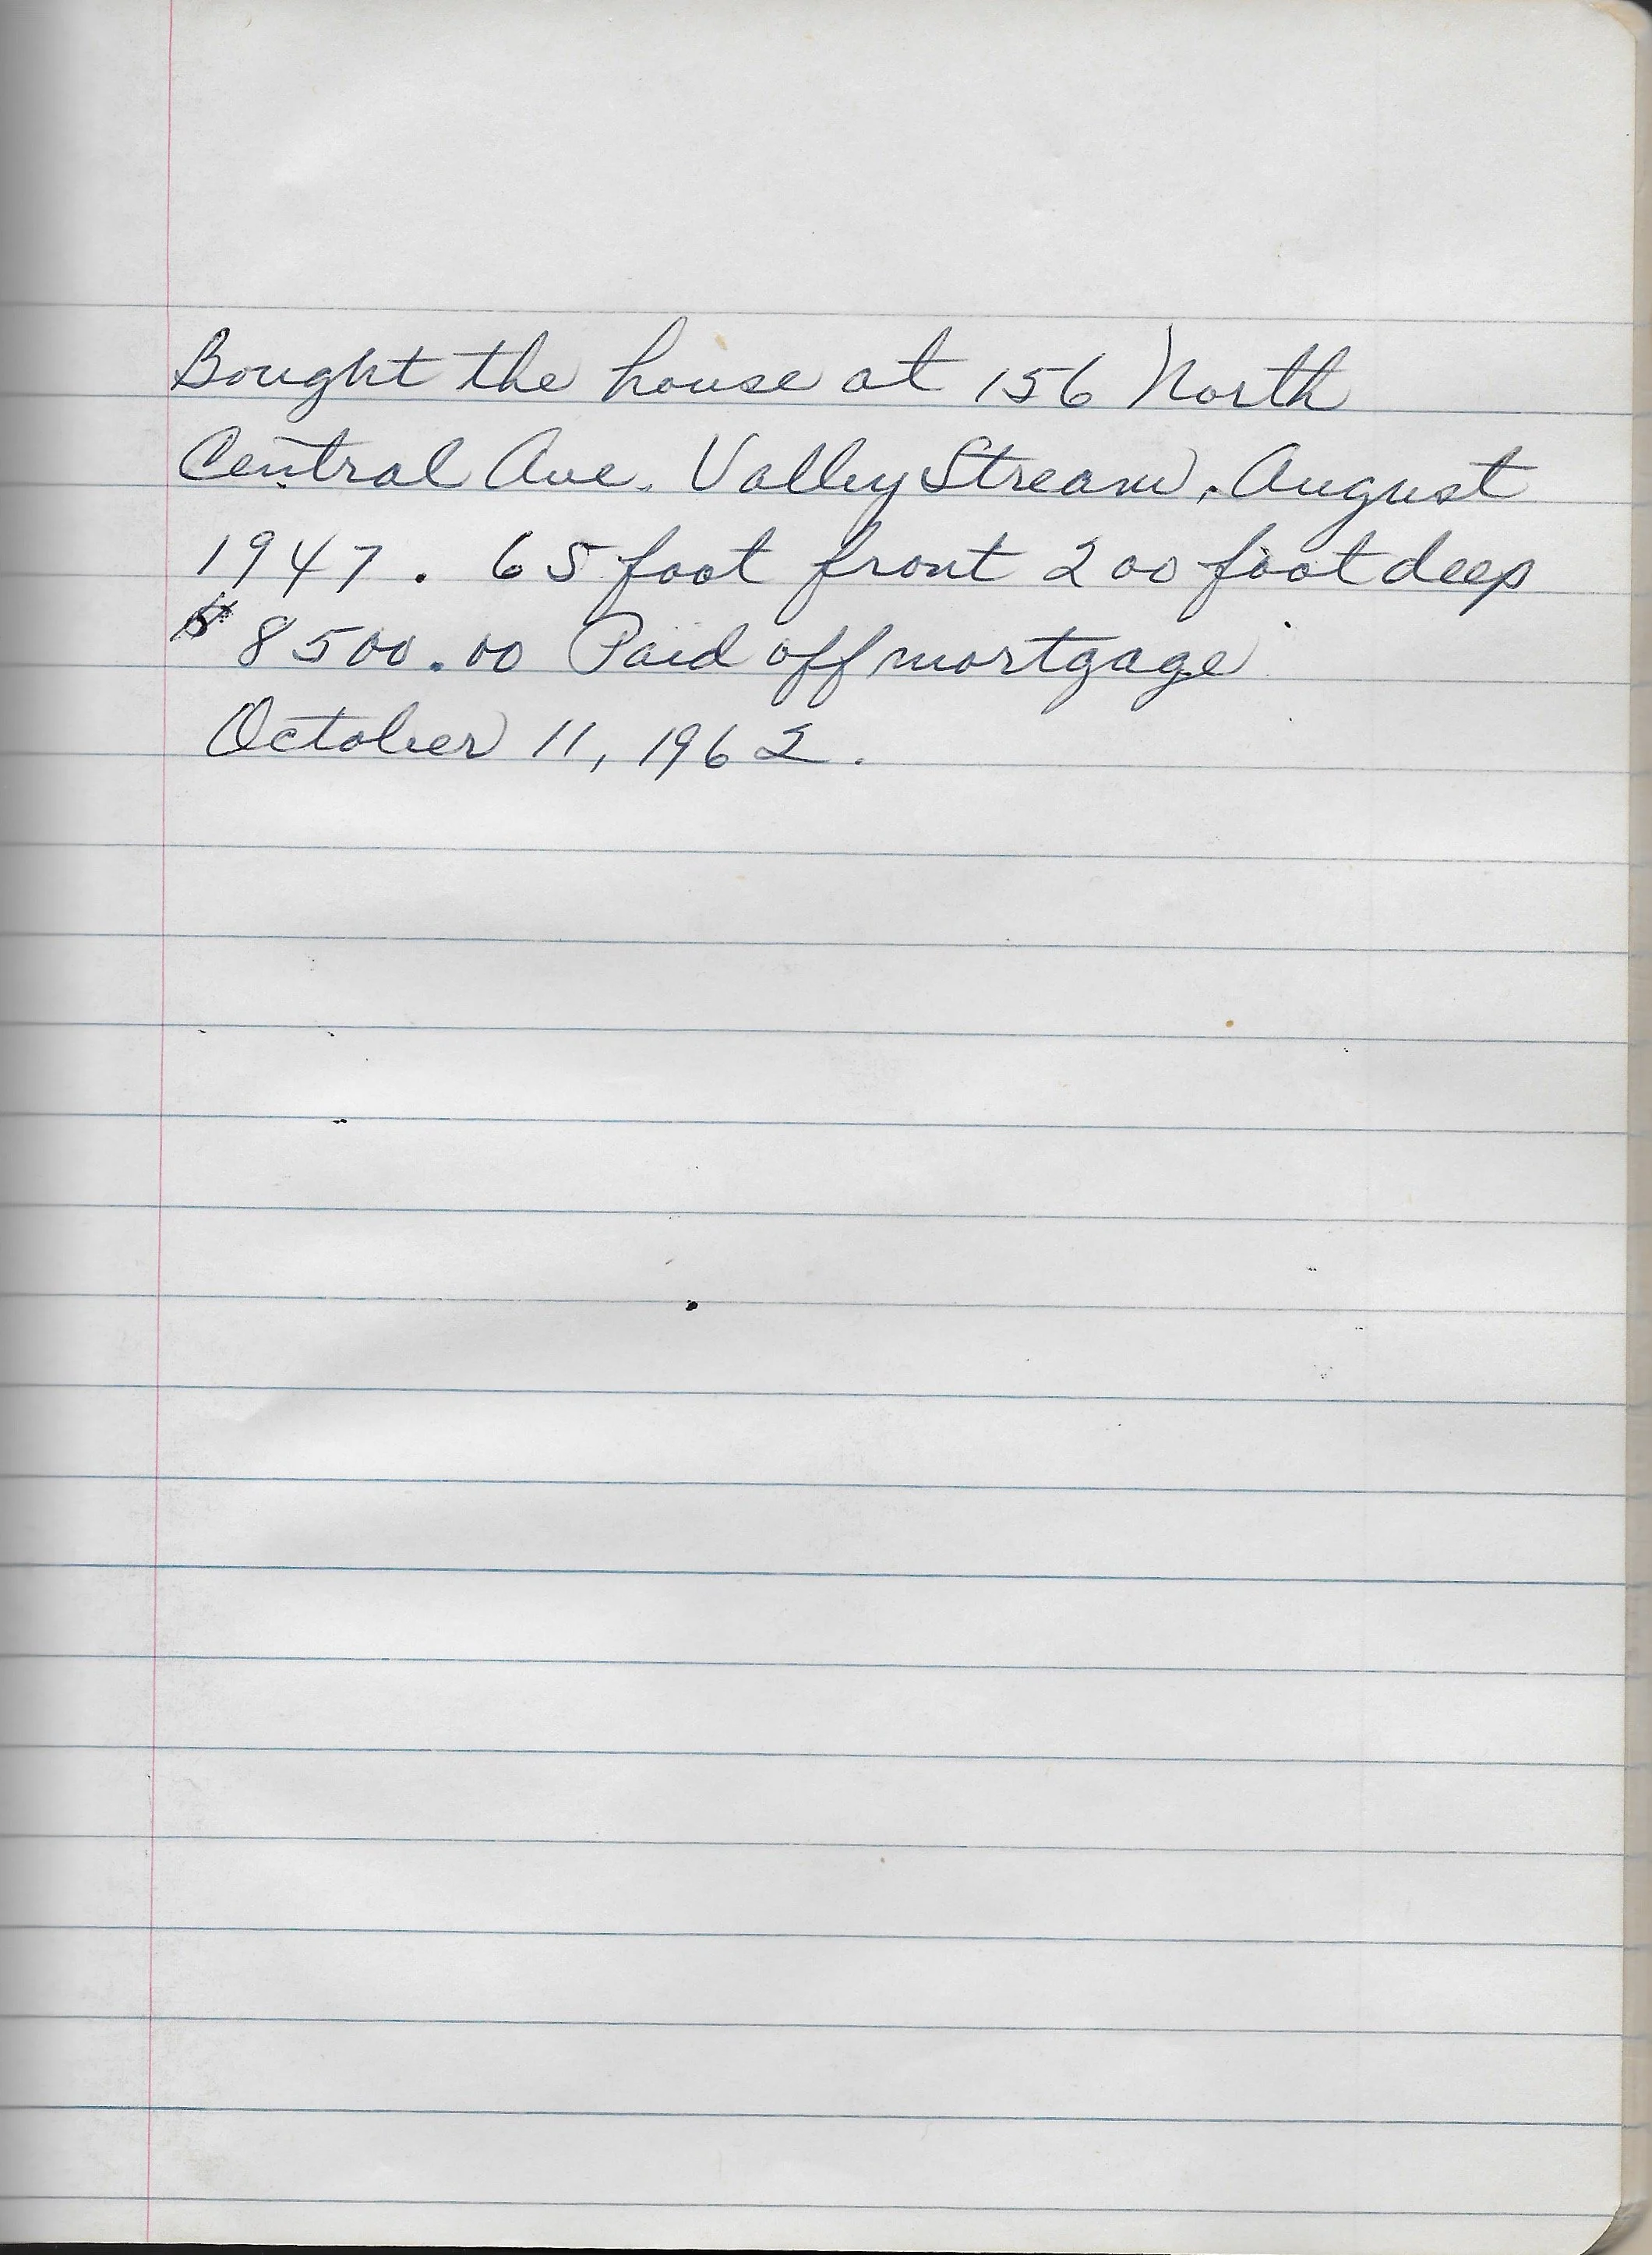 Bought the house at 156 North
Central Ave. Valley Stream. August
1947. 65 foot front 200 foot deep
$8500.00 Paid off mortgage
October 11, 1962.